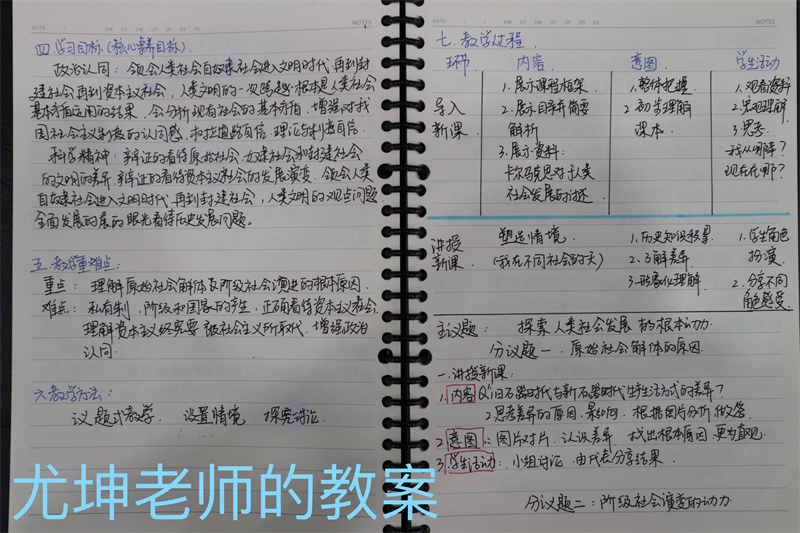 DATE
NOTES
四 学习目标（核心素养目标）
政治认同：领会人类社会自奴隶社会进入文明时代，再到封
建社会再到资本主义社会，人类文明的一次跨越，根本是人类社会
基本矛盾运用的结果，会分析现有社会的基本矛盾，增强对我
国社会主义制度的认同感，和道路自信 理论与制度自信.
科学精神：辩证的看待原始社会、奴隶社会和封建社会
的文明的差异，辩证的看待资本主义社会的发展演变. 领会人类
自奴隶社会进入文明时代，再到封建社会，人类文明的观点问题.
全面发展的展的眼光看待历史发展问题。
五. 教学重难点：
重点：理解原始社会解体及阶级社会演进的根本原因.
难点：私有制，阶级和国家的产生，正确看待资本主义社会.
理解资本主义终究要被社会主义所取代，增强政治
认同.
六 教学方法：
议题式教学， 设置情境 探究讨论.
DATE
NOTES
七. 教学过程.
环节 内容 意图 学生活动
导入
新课.
1. 展示课程框架.
2. 展示目录并简要
解析
3. 展示资料：
卡尔马克思对于人类
社会发展的论述
1. 整体把握.
2. 初步理解
课本.
1. 观看资料
2. 宏观理解.
3. 思考.
我从哪来？
现在在哪？
讲授
新课.
塑造情境.
（我在不同社会的一天）
1. 历史知识积累.
2. 了解差异.
3. 形象化理解.
1. 学生角色
扮演.
2. 分享不同
角色感受.
主议题： 探索人类社会发展的根本动力.
分议题一. 原始社会解体的原因.
一. 讲授新课：
1. 内容 Q：1旧石器时代与新石器时代生产生活方式的差异？
2思考差异的原因 是如何. 根据图片分析，做答.
2. 意图：图片对片，认识差异 找出根本原因，更为直观.
3. 学生活动：小组讨论 由代表分享结果.
分议题二：阶级社会演变的动力.
尤坤老师的教案